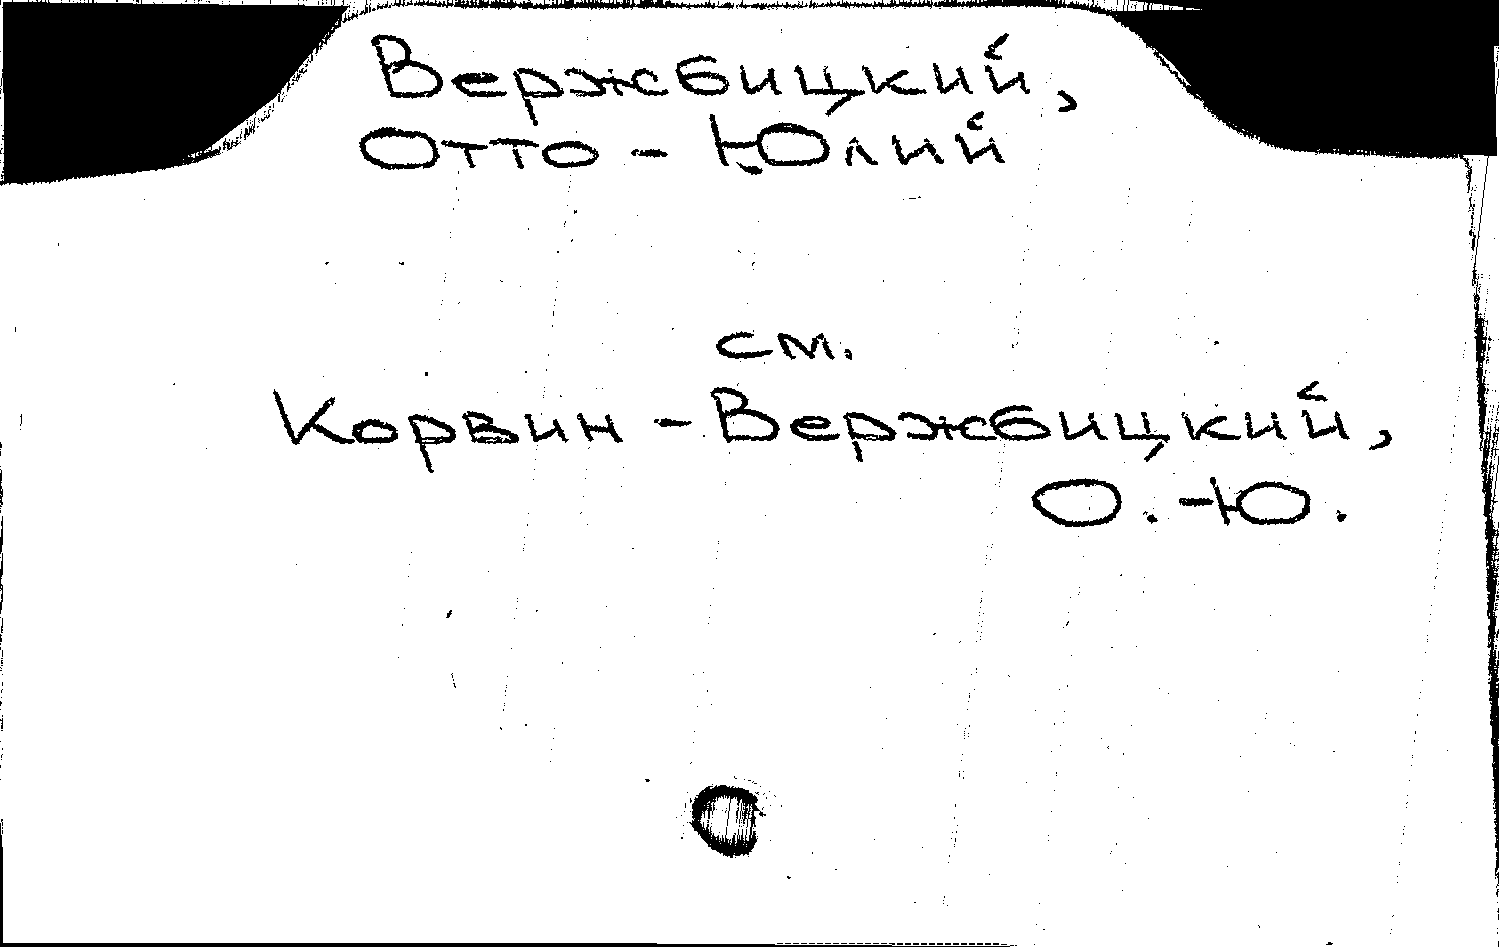 Вержбицкий,
Отто - Юлий
см.
Корвин - Вержбицкий,
О. -Ю.